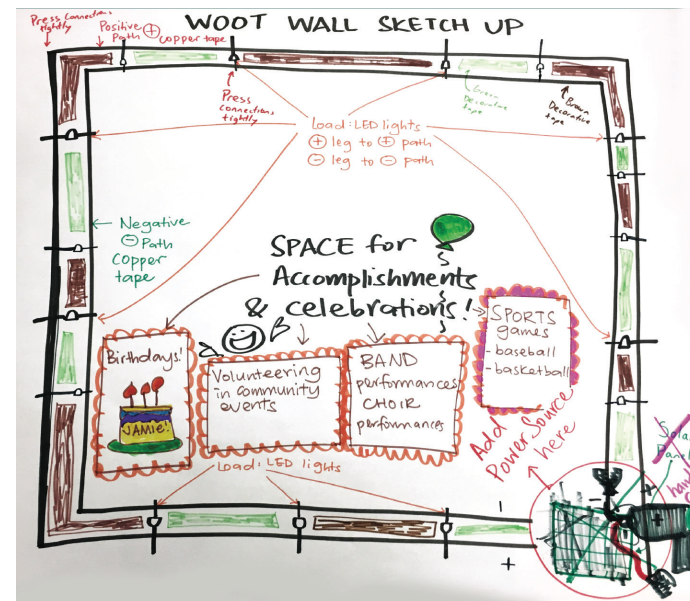 WOOT WALL SKETCH UP
Press Connections
tightly
Positive ⊕
Path copper tape
Press
Connections
tightly
Green
Decorative
tape
Brown
Decorative
tape
Load: LED lights
⊕ leg to ⊕ path
⊖ leg to ⊖ path
Negative
⊖ Path
copper
tape
SPACE for
Accomplishments
& celebrations!
Birthdays!
JAMIE!
Volunteering
in community
events
BAND
performances
CHOIR
performances
SPORTS
games
- baseball
- basketball
Add
Power Source
here
Load: LED lights
-
+
-
+